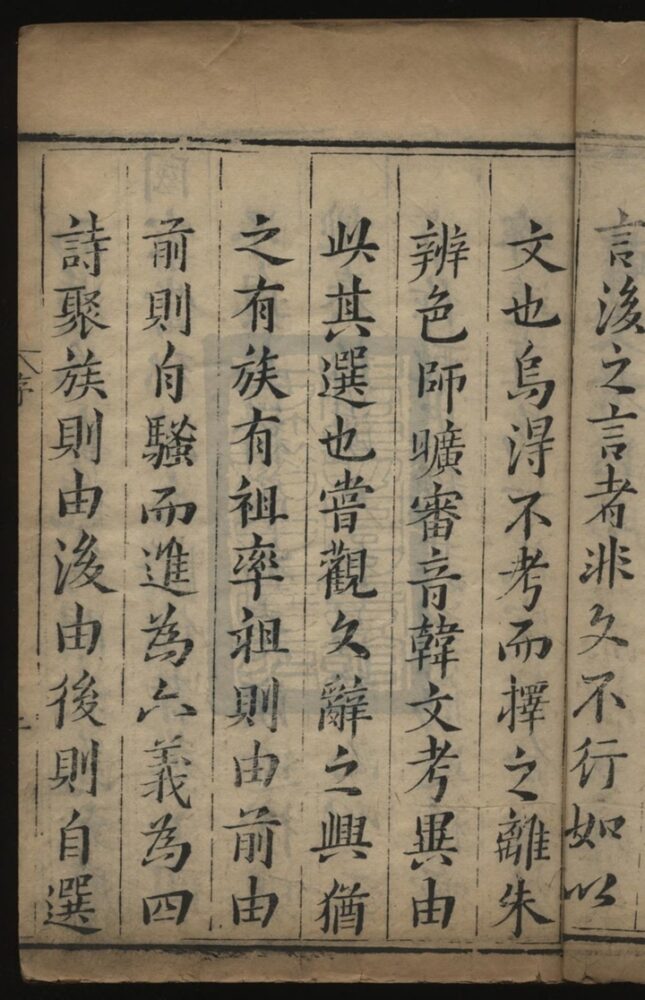 言後之言者非文不行如以
文也烏得不考而擇之離朱
辨色師曠審音韓文考異由
此其選也嘗觀文辭之興猶
之有族有祖率祖則由前由
前則自騷而進為六義為四
詩聚族則由後由後則自選
序